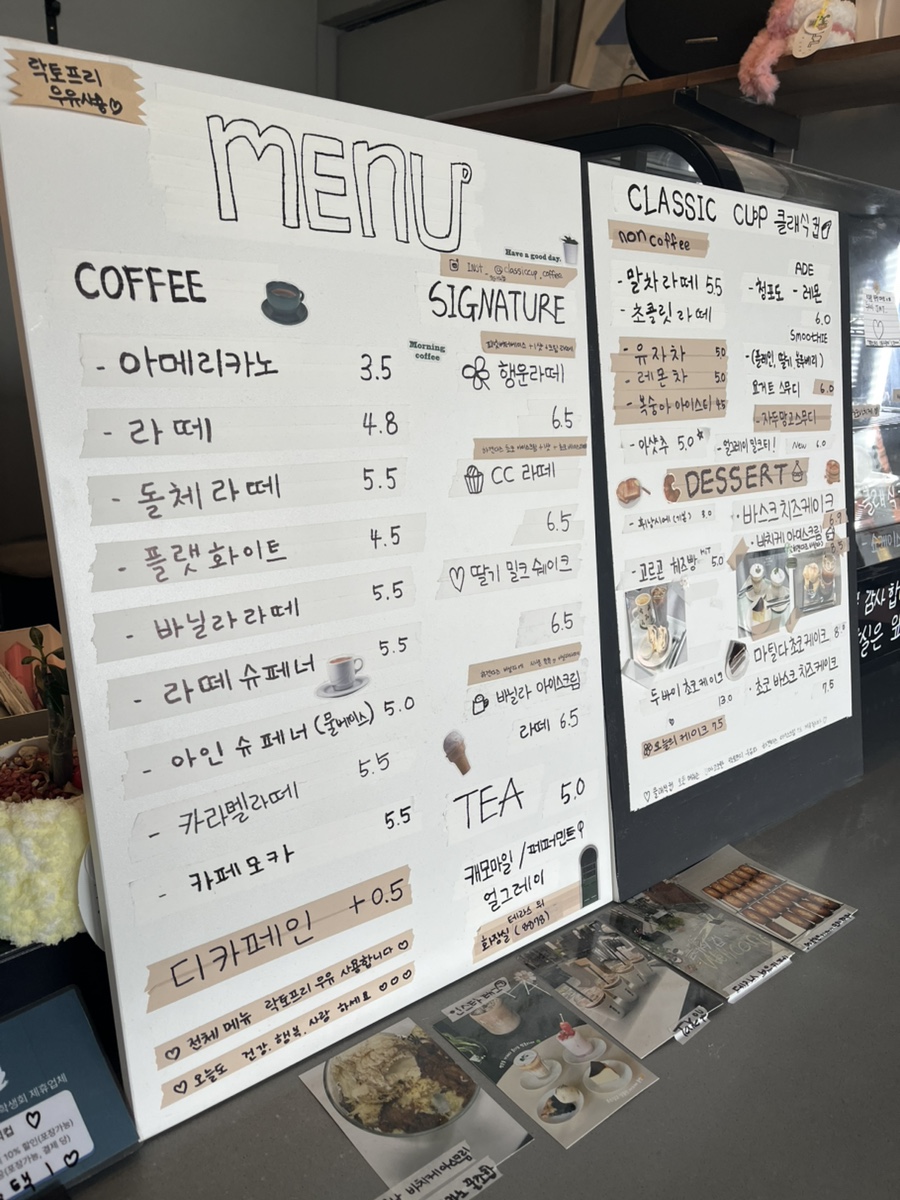 락토프리
우유사용♡
MENU
Have a good day.
COFFEE
- 아메리카노 3.5
- 라떼 4.8
- 돌체라떼 5.5
- 플랫화이트 4.5
- 바닐라라떼 5.5
- 라떼슈페너 5.5
- 아인슈페너 (물베이스) 5.0
- 카라멜라떼 5.5
- 카페모카 5.5
디카페인 +0.5
♡ 전체 메뉴 락토프리 우유 사용합니다 ♡
♡ 오늘도 건강, 행복, 사랑 하세요 ♡♡♡
@classiccup_coffee
SIGNATURE
Morning
coffee
행운라떼
6.5
CC 라떼
6.5
♡ 딸기 밀크쉐이크
6.5
바닐라 아이스크림
라떼 6.5
TEA 5.0
캐모마일 / 페퍼민트
얼그레이
테라스 뒤
화장실 (8878)
CLASSIC CUP 클래식컵
non coffee
- 말차라떼 5.5
- 초콜릿라떼
- 유자차 5.0
- 레몬차 5.0
- 복숭아 아이스티 4.5
- 아샷추 5.0
ADE
- 청포도 - 레몬
6.0
SmOOtHIE
- (플레인, 딸기, 블루베리)
요거트 스무디 6.0
- 자두망고스무디
- 얼그레이 밀크티! New 6.0
DESSERT
- 휘낭시에 (기본) 3.0
- 고르곤 치즈빵 HIT 5.0
· 바스크치즈케이크
6.9
· 바치케 아이스크림
두바이 초코케이크
13.0
마틸다 초코케이크
· 초코 바스크 치즈케이크
7.5
오늘의 케이크 7.5
감사합
제휴업체
10% 할인(포장가능)
(포장가능, 결제 당
바치케아이스크림